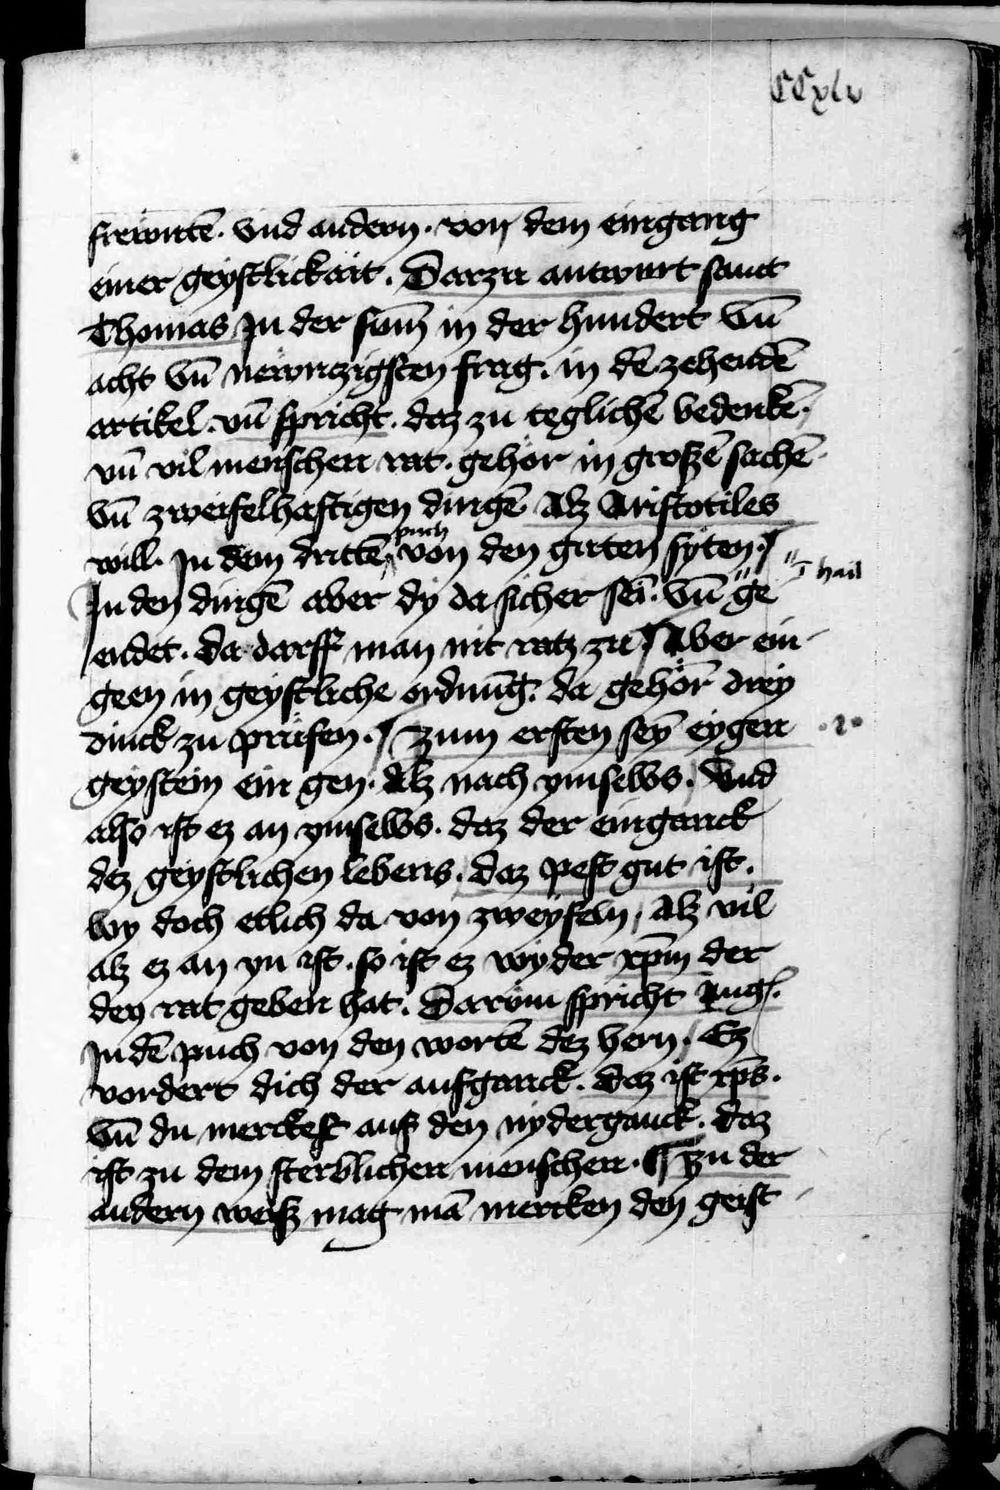 CCxlv
frewntē. vnd andern. von dem eingang
einer geystlickait. Darzu antwurt sanct
Thomas In der sum̄ in der hundert vn̄
acht vn̄ newnczigsten frag. in dē zehendē
artikel. vn̄ spricht. daz zu teglichē bedenkē.
vn̄ vil menschen rat. gehör in groszē sachē
vn̄ zweifelhaftigen dingē Alz Aristotiles
will. In dem drittē puch von den guten syten.
In den dingē aber dy da sicher sei. vn̄ ge
endet. Da darff man nit ratz zu Aber ein
geen in geystliche ordnūg. da gehör̄ drey
dinck zu prüfen. Zum ersten sey eygen .1.
geystein ein gen. Alz nach ymselbs. Vnd
also ist ez an ymselbs. daz der einganck
dez geystlichen lebens. Daz pest gut ist.
wy doch etlich da von zweyfeln, Alz vil
alz ez an yn ist. so ist ez wyder xp̄m der
den rat geben hat. Darüm spricht Aug.
In dē puch von den wortē dez hern. Ez
vordert dich der aufganck. Daz ist xp̄s.
vn̄ du merckest auf den nyderganck. daz
ist zu dem sterblichen menschen. Zu der
andern weisz mag mā mercken den geist